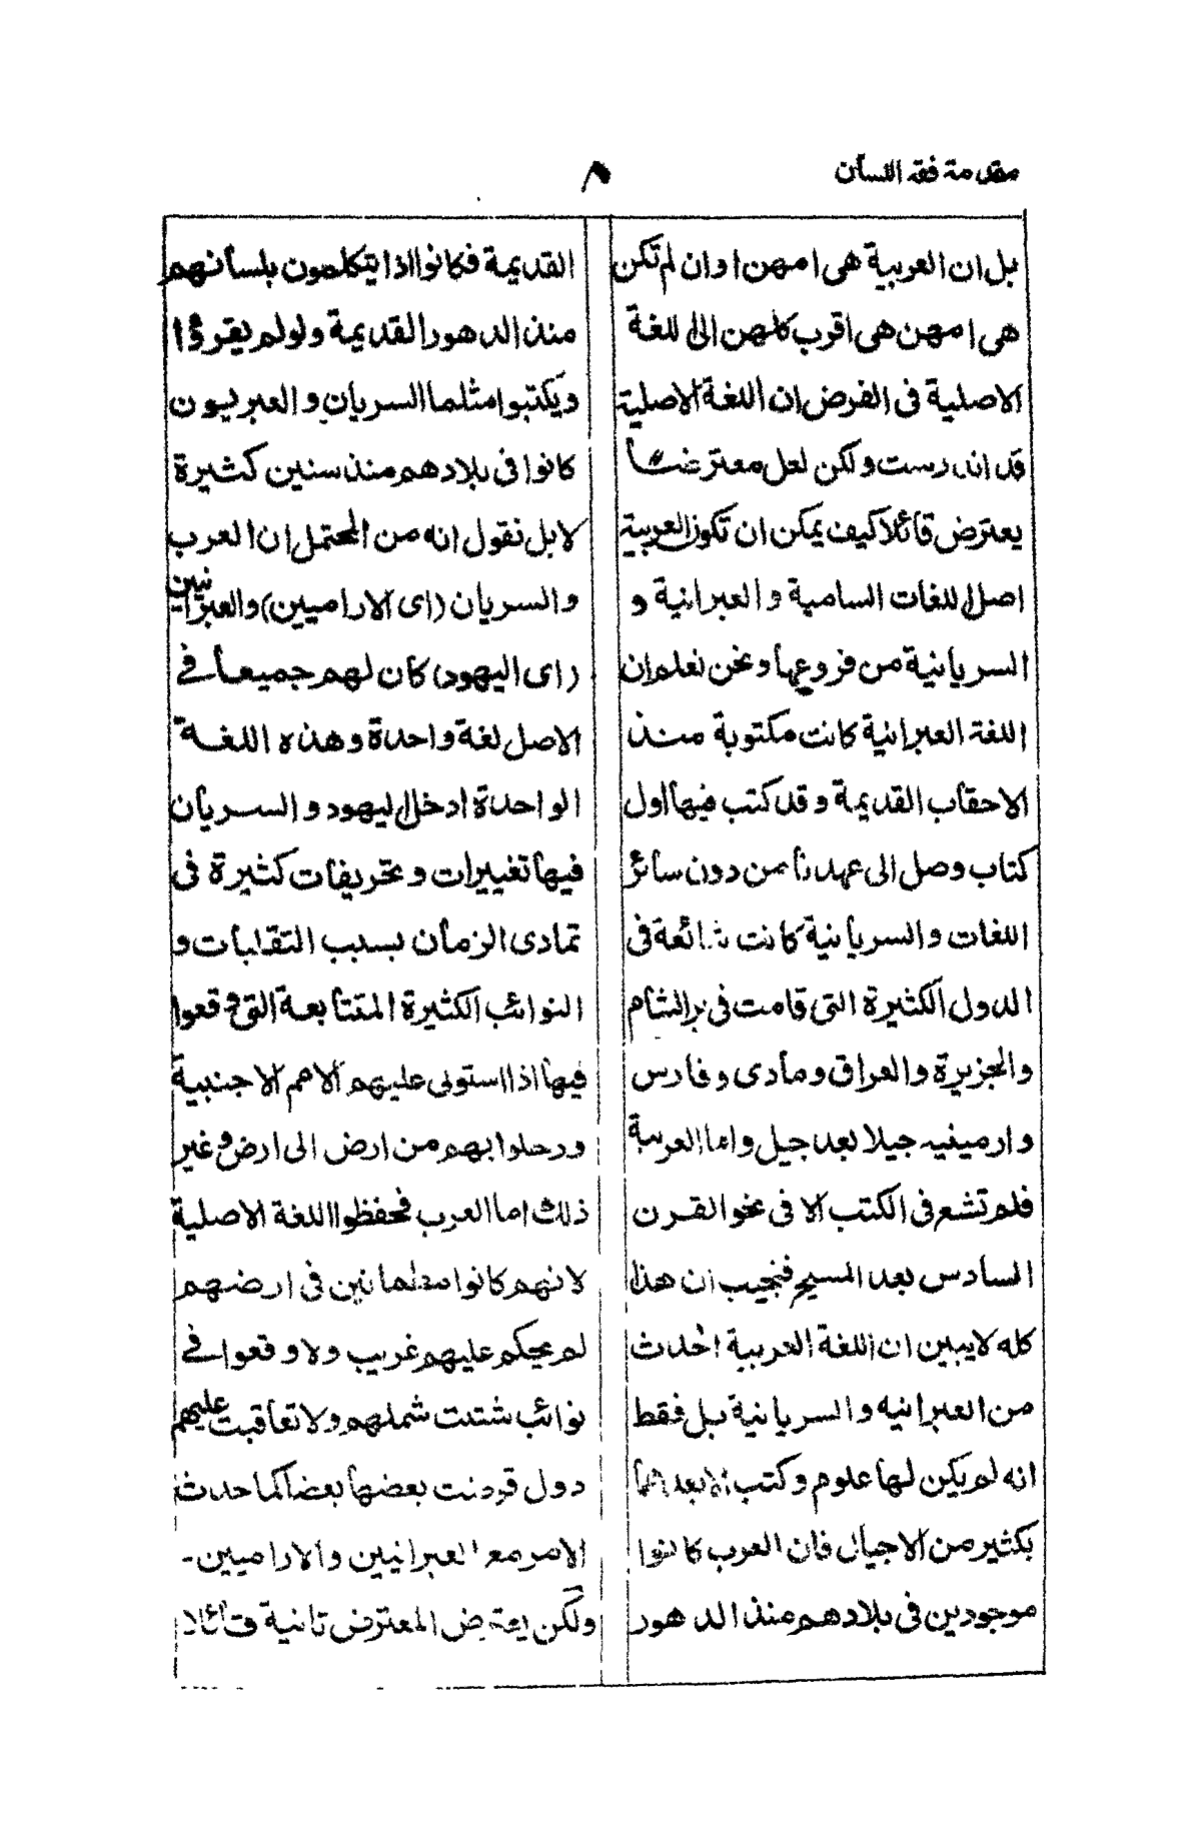 مقدمة فقه اللسان
٨
بل ان العربية هى امهن او ان لم تكن
هى امهن هى اقرب كلهن الى للغة
الاصلية فى الفرض ان اللغة الاصلية
قد اندرست ولكن لعل معترضاً
يعترض قائلا كيف يمكن ان تكون العربية
اصل للغات السامية والعبرانية و
السريانية من فروعها ونحن نعلم ان
اللغة العبرانية كانت مكتوبة منذ
الاحقاب القديمة وقد كتب فيها اول
كتاب وصل الى عهدنا من دون سائر
اللغات والسريانية كانت شائعة فى
الدول الكثيرة التى قامت فى بر الشام
والجزيرة والعراق ومادى وفارس
وارمينيه جيلا بعد جيل واما العربية
فلم تشع فى الكتب الا فى نحو القرن
السادس بعد المسيح فنجيب ان هذا
كله لا يبين ان اللغة العربية احدث
من العبرانيه والسريانية بل فقط
انه لم يكن لها علوم وكتب الا بعدهما
بكثير من الاجيال فان العرب كانوا
موجودين فى بلادهم منذ الدهور
القديمة فكانوا اذا يتكلمون بلسانهم
منذ الدهور القديمة ولو لم يقرؤا
ويكتبوا مثلما السريان والعبريون
كانوا فى بلادهم منذ سنين كثيرة
لا بل نقول انه من المحتمل ان العرب
والسريان (اى الاراميين) والعبرانيين
(اى اليهود) كان لهم جميعاً فى
الاصل لغة واحدة وهذه اللغة
الواحدة ادخل ليهود والسريان
فيها تغييرات وتحريفات كثيرة فى
تمادى الزمان بسبب التقلبات و
النوائب الكثيرة المتتابعة التى وقعوا
فيها اذا استولى عليهم الامم الاجنبية
ورحلوا بهم من ارض الى ارض وغير
ذلك اما العرب فحفظوا اللغة الاصلية
لانهم كانوا مطمانين فى ارضهم
لم يحكم عليهم غريب ولا وقعوا فى
نوائب شتتت شملهم ولا تعاقبت عليهم
دول قرضت بعضها بعضا كما حدث
الامر مع العبرانيين والاراميين-
ولكن يعترض المعترض ثانية قائلا